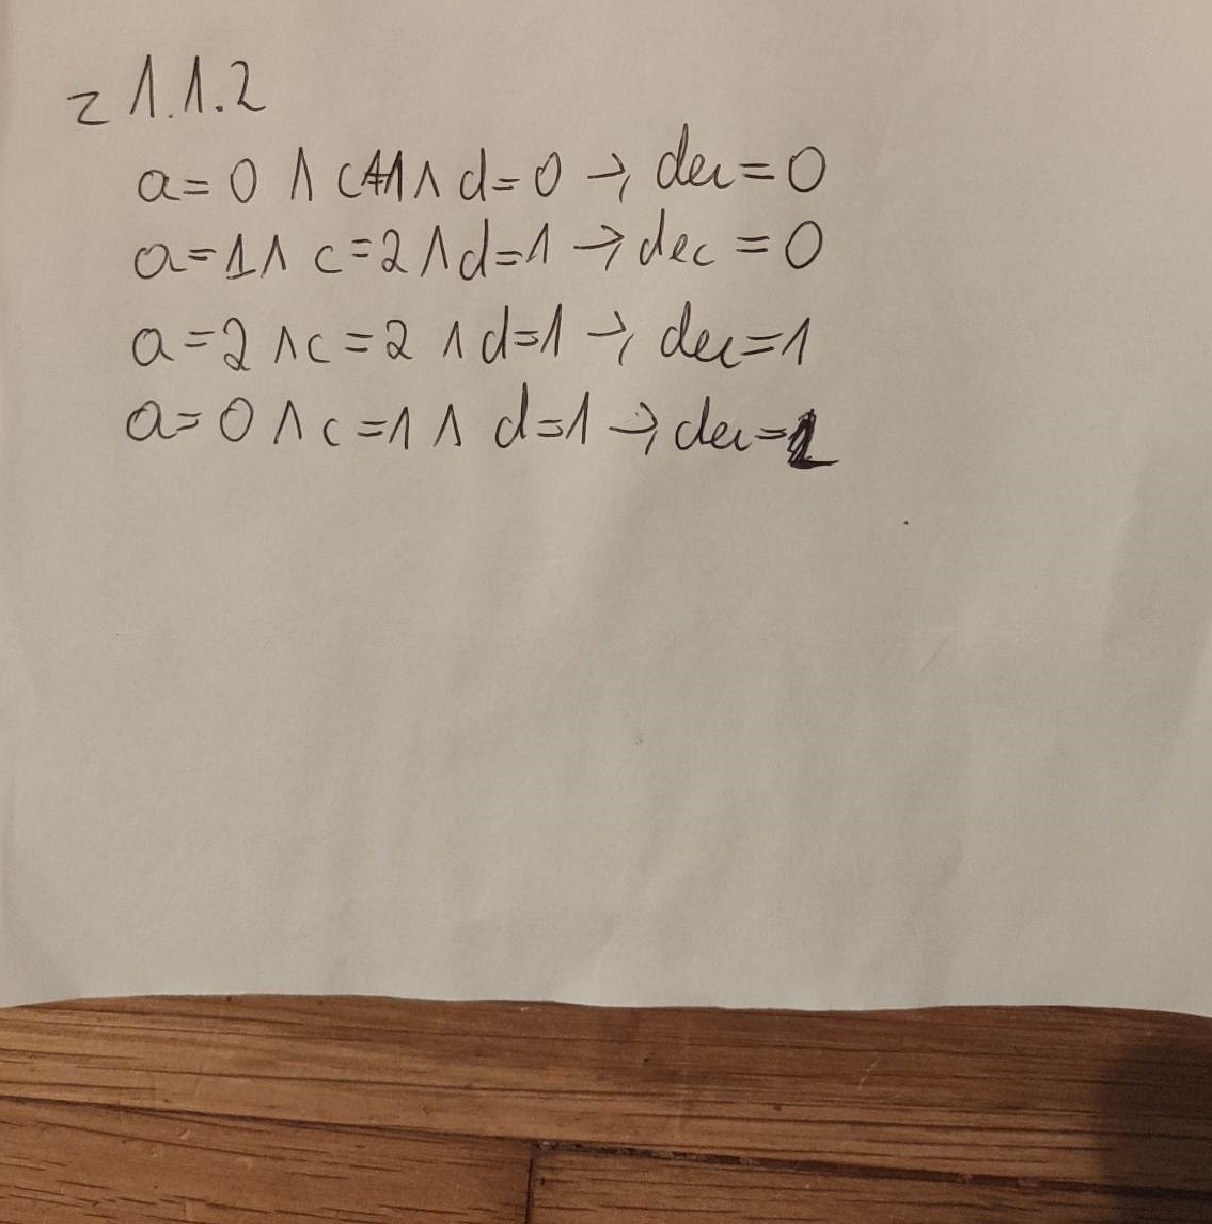 z 1.1.2
a=0 ∧ c=1 ∧ d=0 → dec=0
a=1 ∧ c=2 ∧ d=1 → dec=0
a=2 ∧ c=2 ∧ d=1 → dec=1
a=0 ∧ c=1 ∧ d=1 → dec=